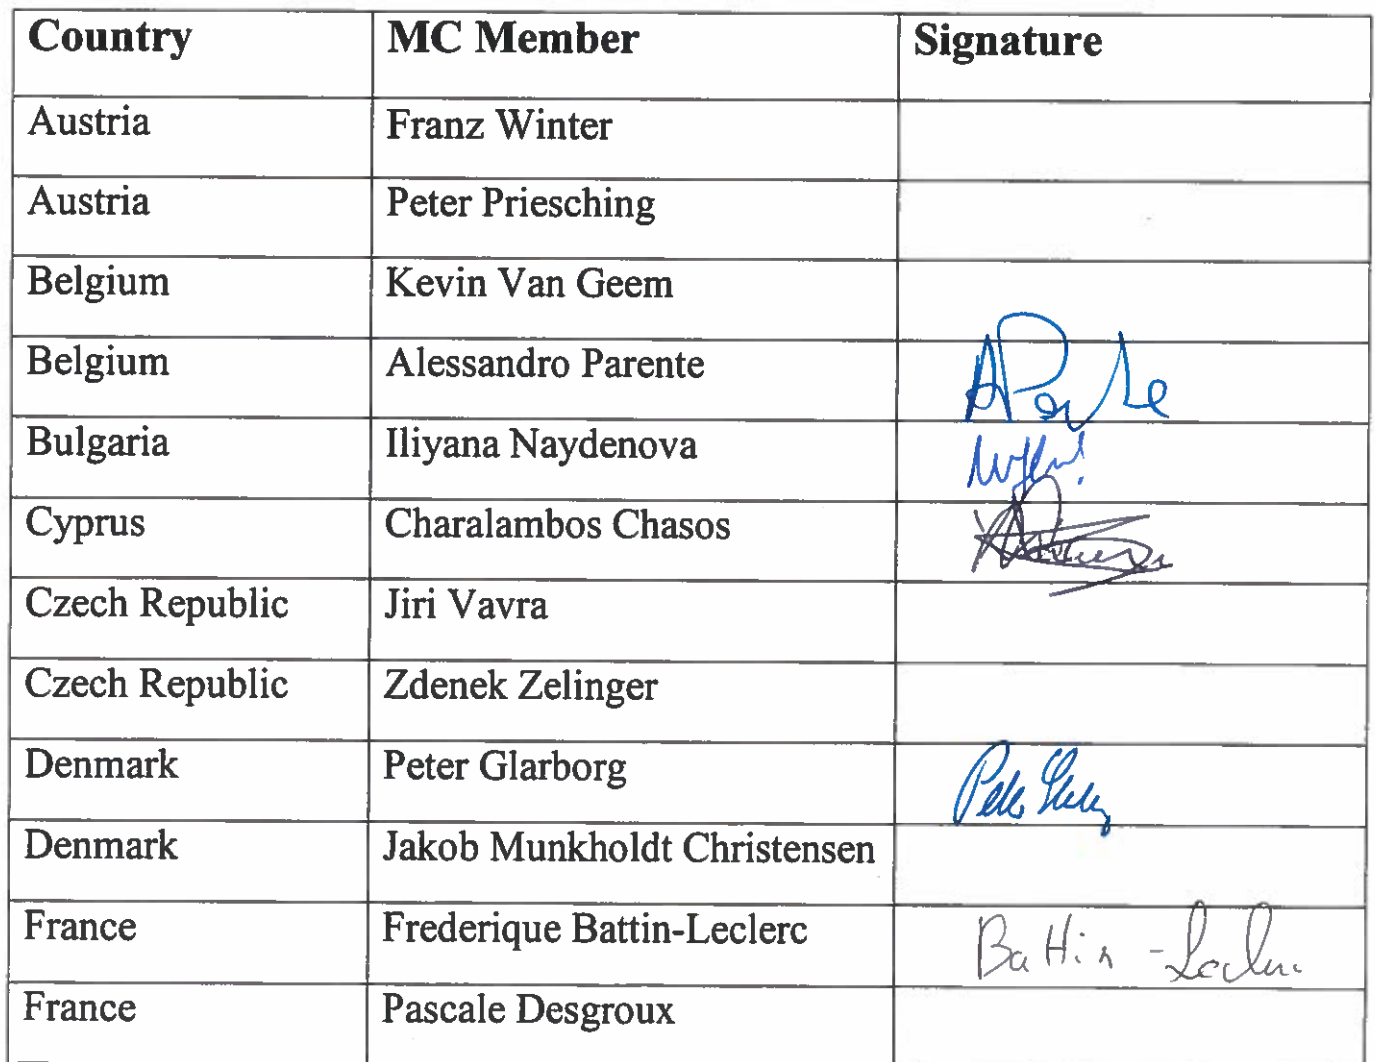 Country MC Member Signature
Austria Franz Winter
Austria Peter Priesching
Belgium Kevin Van Geem
Belgium Alessandro Parente
Bulgaria Iliyana Naydenova
Cyprus Charalambos Chasos
Czech Republic Jiri Vavra
Czech Republic Zdenek Zelinger
Denmark Peter Glarborg Peter
Denmark Jakob Munkholdt Christensen
France Frederique Battin-Leclerc Battin-Leclerc
France Pascale Desgroux